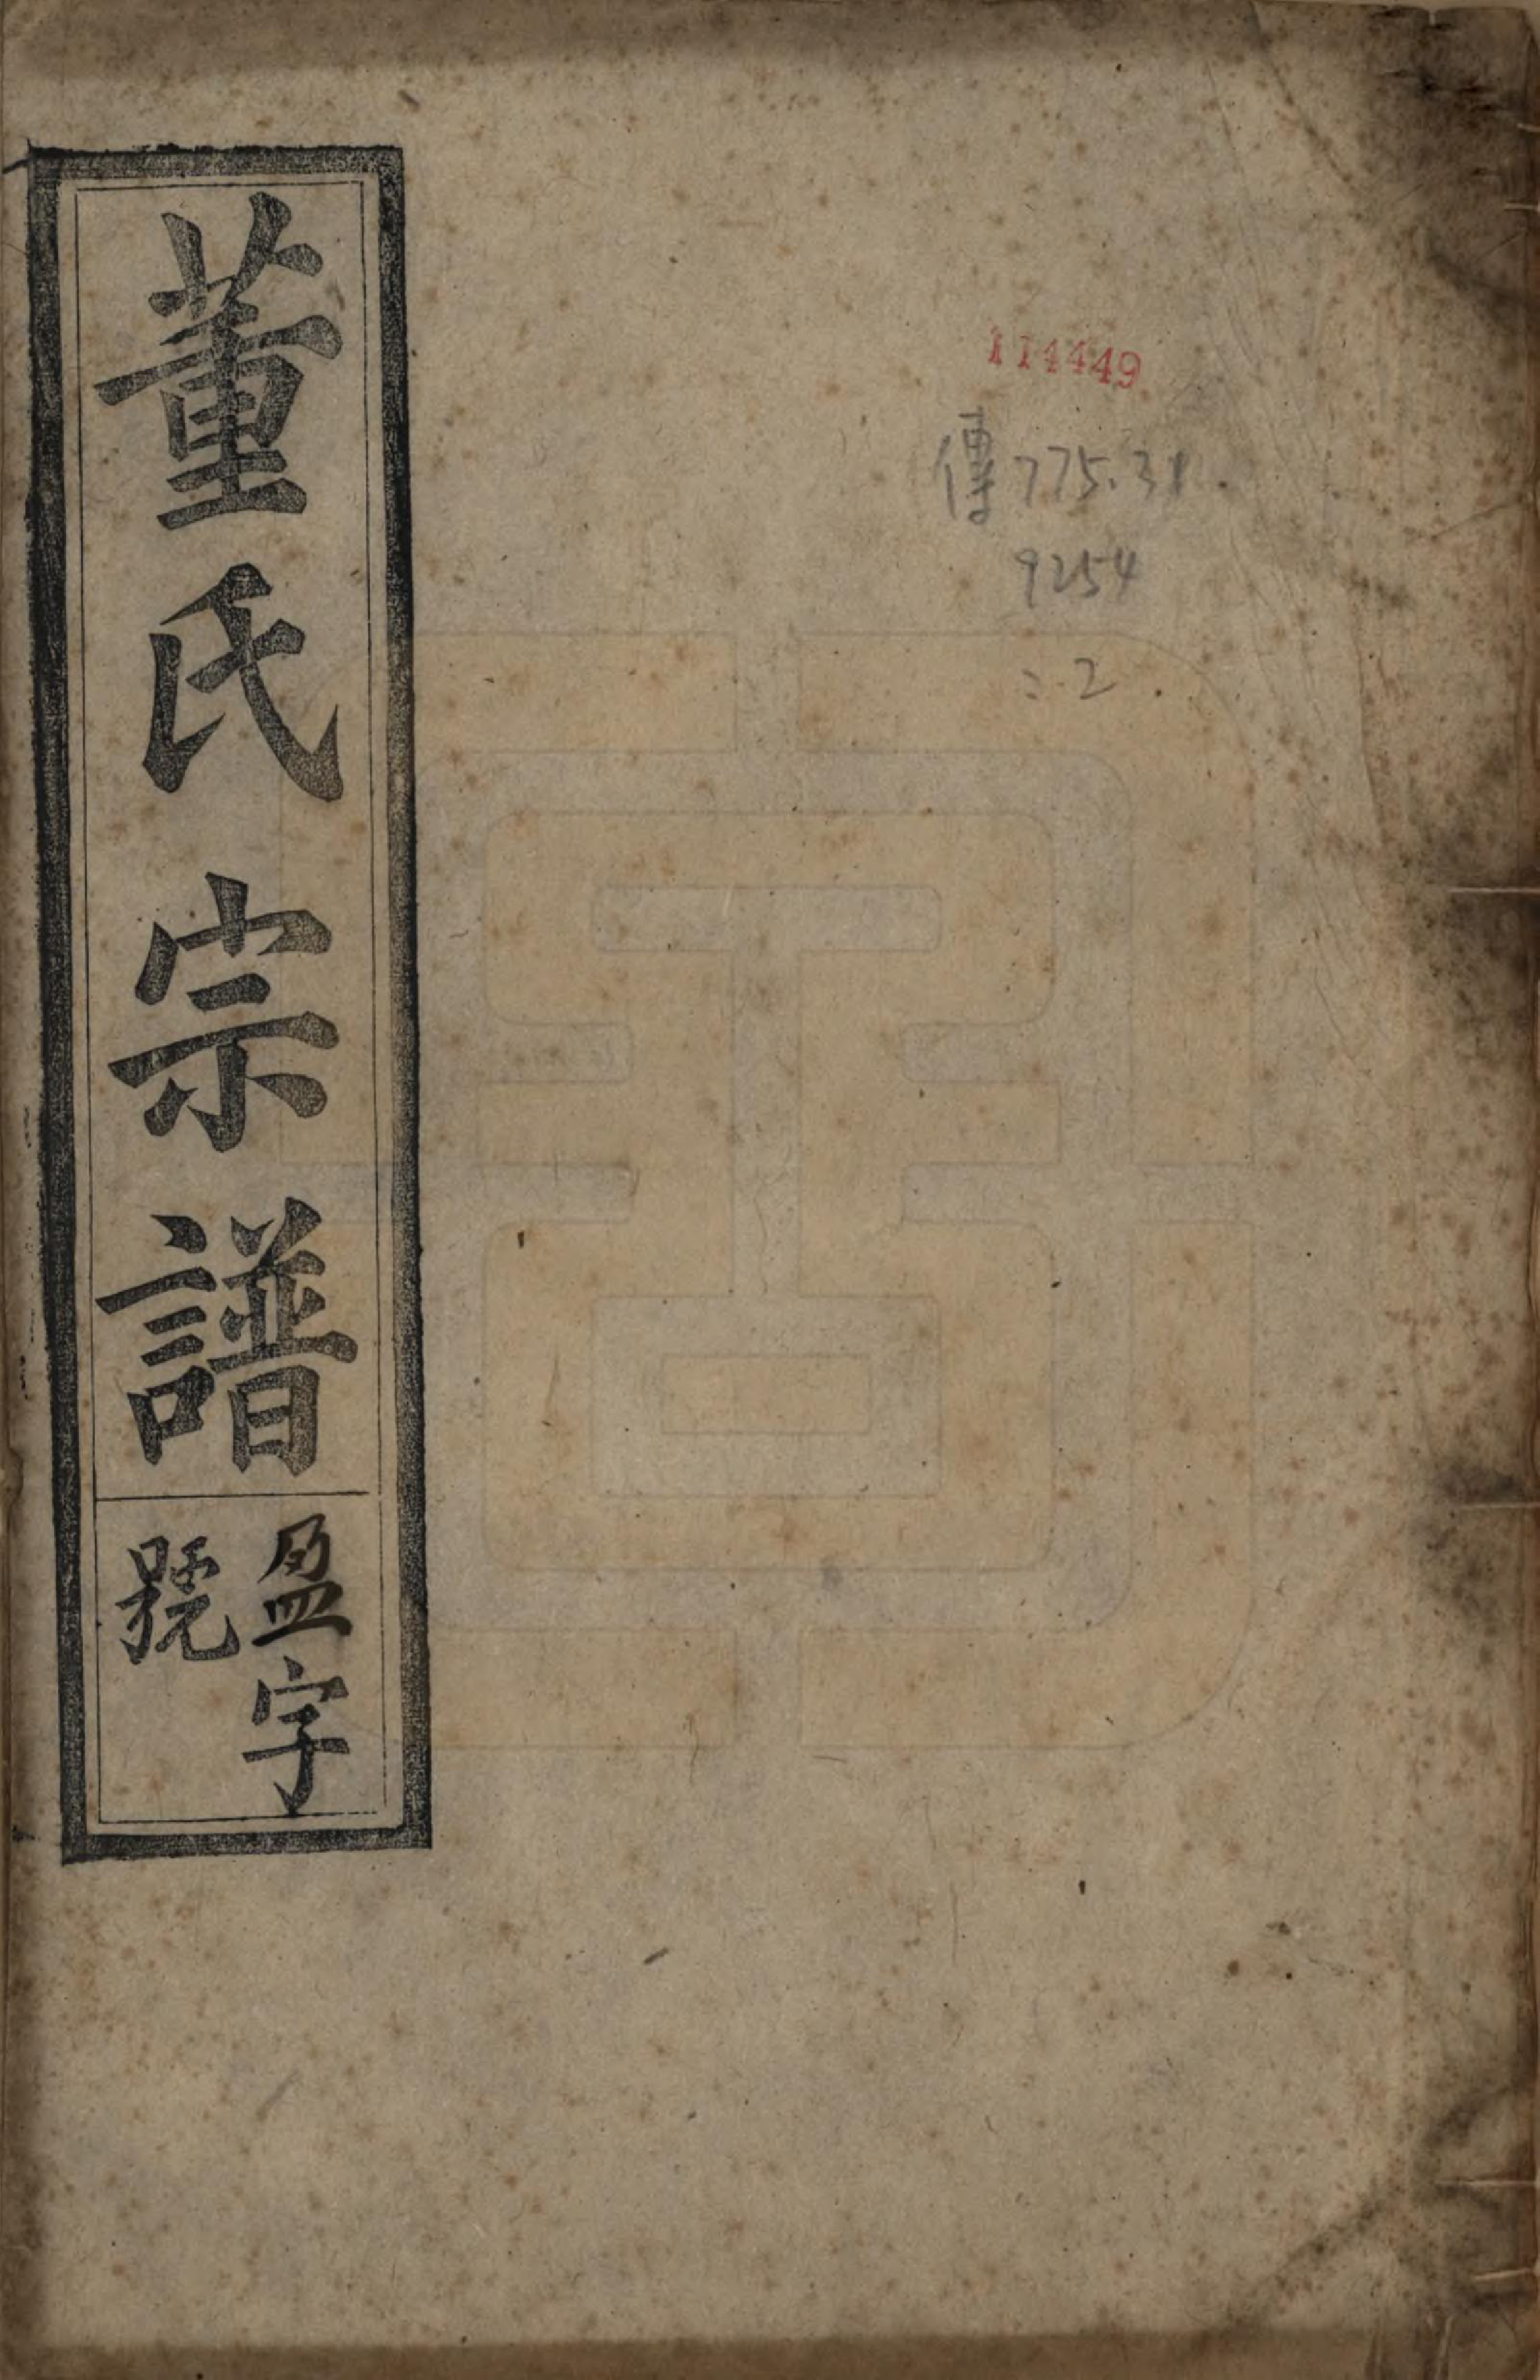 董氏宗譜
盈字
號
114449
傳775.31
9254
:2